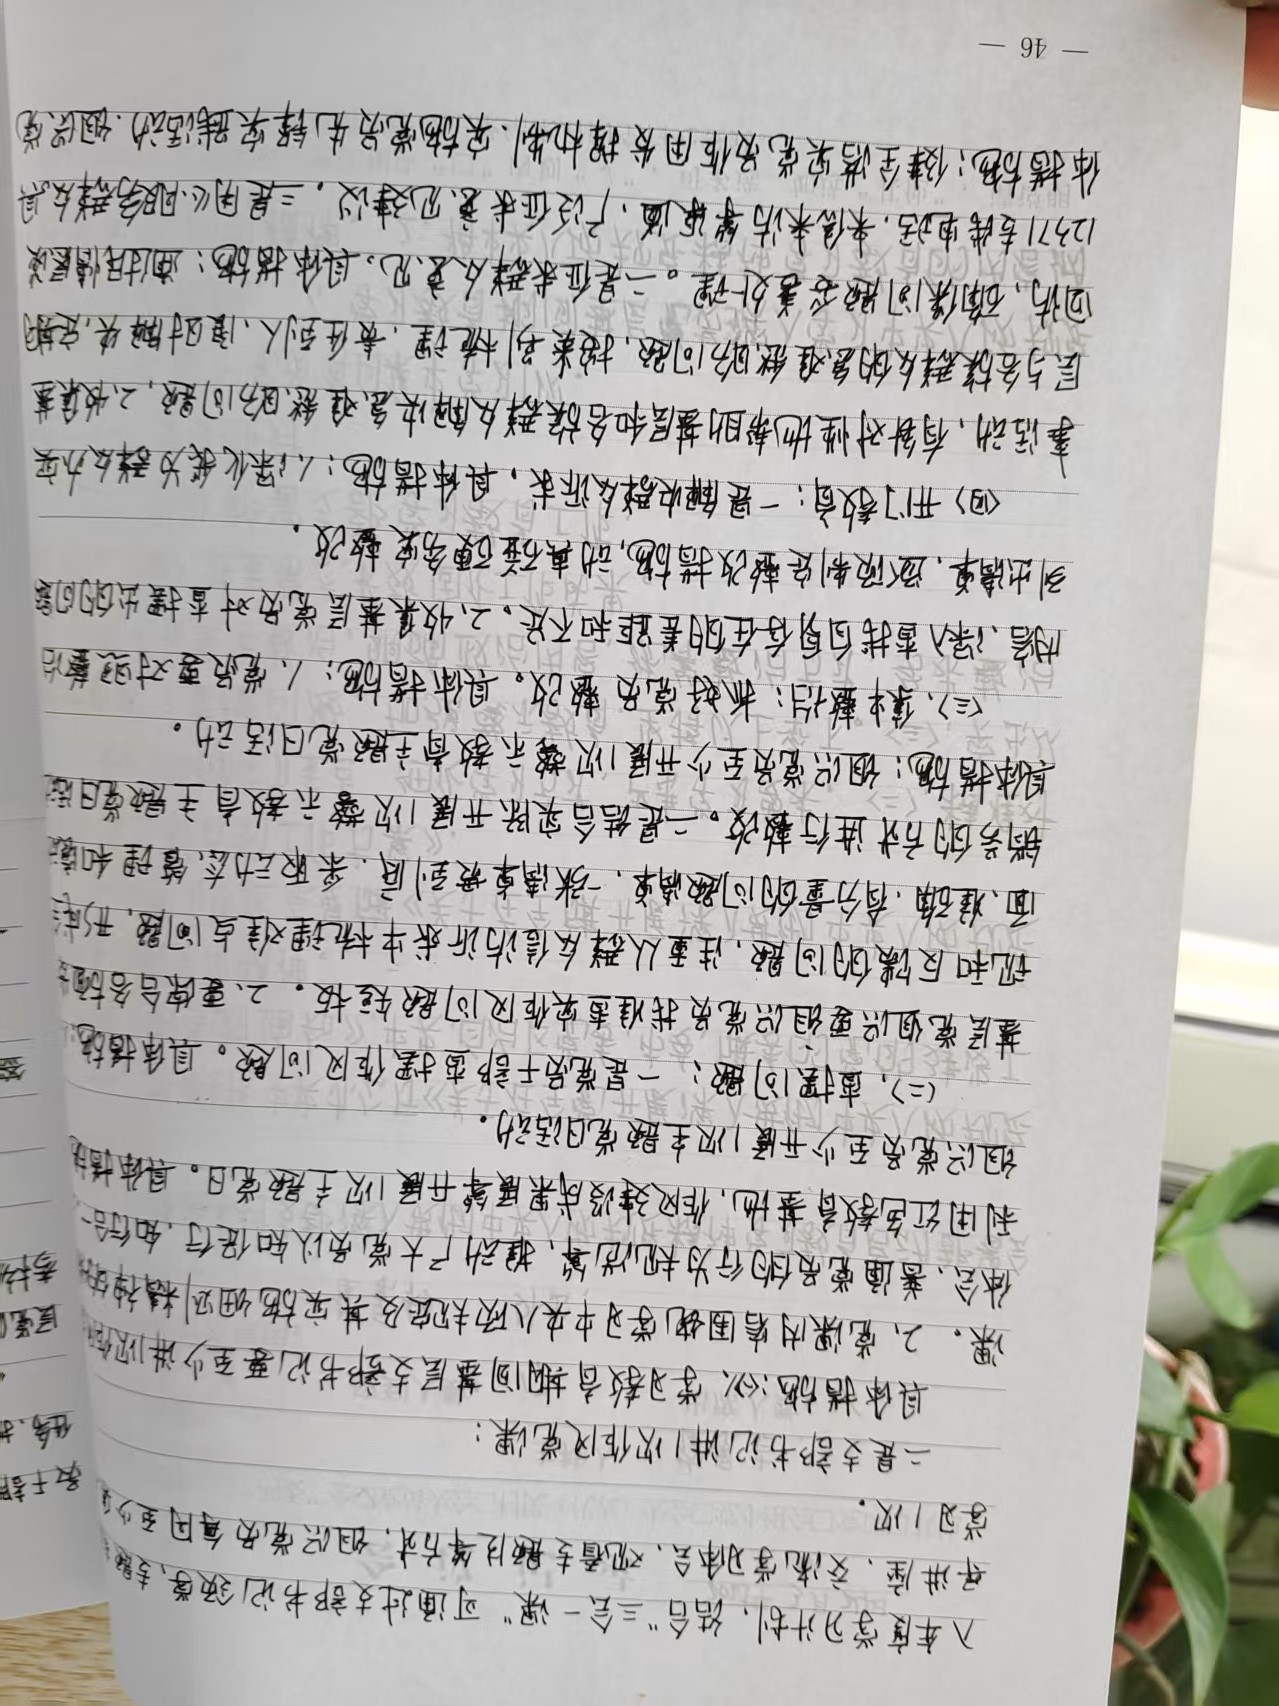 入年度学习计划，结合"三会一课"可通过支部书记领学、专题
开讲座、交流学习体会、观看专题片等方式，组织党员每月至少
学习1次。
二是支部书记讲1次作风党课：
具体措施：1、学习教育期间基层支部书记要至少讲1次作
课。2、党课内容围绕学习中央八项规定及其实施细则精神的
体会、普通党员的行为规范等，推动广大党员以知促行、知行合一
利用红色教育基地，作风建设成果展等开展1次主题党日。具体措施
组织党员至少开展1次主题党日活动。
(二)、查摆问题：一是党员干部查摆作风问题。具体措施
基层党组织要组织党员找准查实作风问题短板。2、要综合各方面
现和反馈的问题，注重从群众信访诉求中梳理难点问题，形成
面、准确、有分量的问题清单，一张清单管到底，采取动态管理和
销号的方式进行整改。二是结合实际开展1次警示教育主题党日活
具体措施：组织党员至少开展1次警示教育主题党日活动。
(三)、集中整治：抓好党员整改。具体措施：1、党员要对照整治
内容、深入查找自身存在的差距和不足。2、收集基层党员对查摆出的问题
列出清单、逐项制定整改措施，动真碰硬务实整改。
(四)开门教育：一是解决群众诉求，具体措施：1、深化我为群众办实
事活动，有针对性地帮助基层和各族群众解决急难愁盼问题，2、收集基
层与各族群众的急难愁盼问题，提案别梳理、责任到人、限时解决、定期
回访、确保问题妥善处理。二是征求群众意见。具体措施：通过用情
12371专线电话、来信来访等渠道，广泛征求意见建议。三是用心服务群众具
体措施：健全落实党员作用发挥机制，实施党员先锋实践活动，组织党
— 46 —